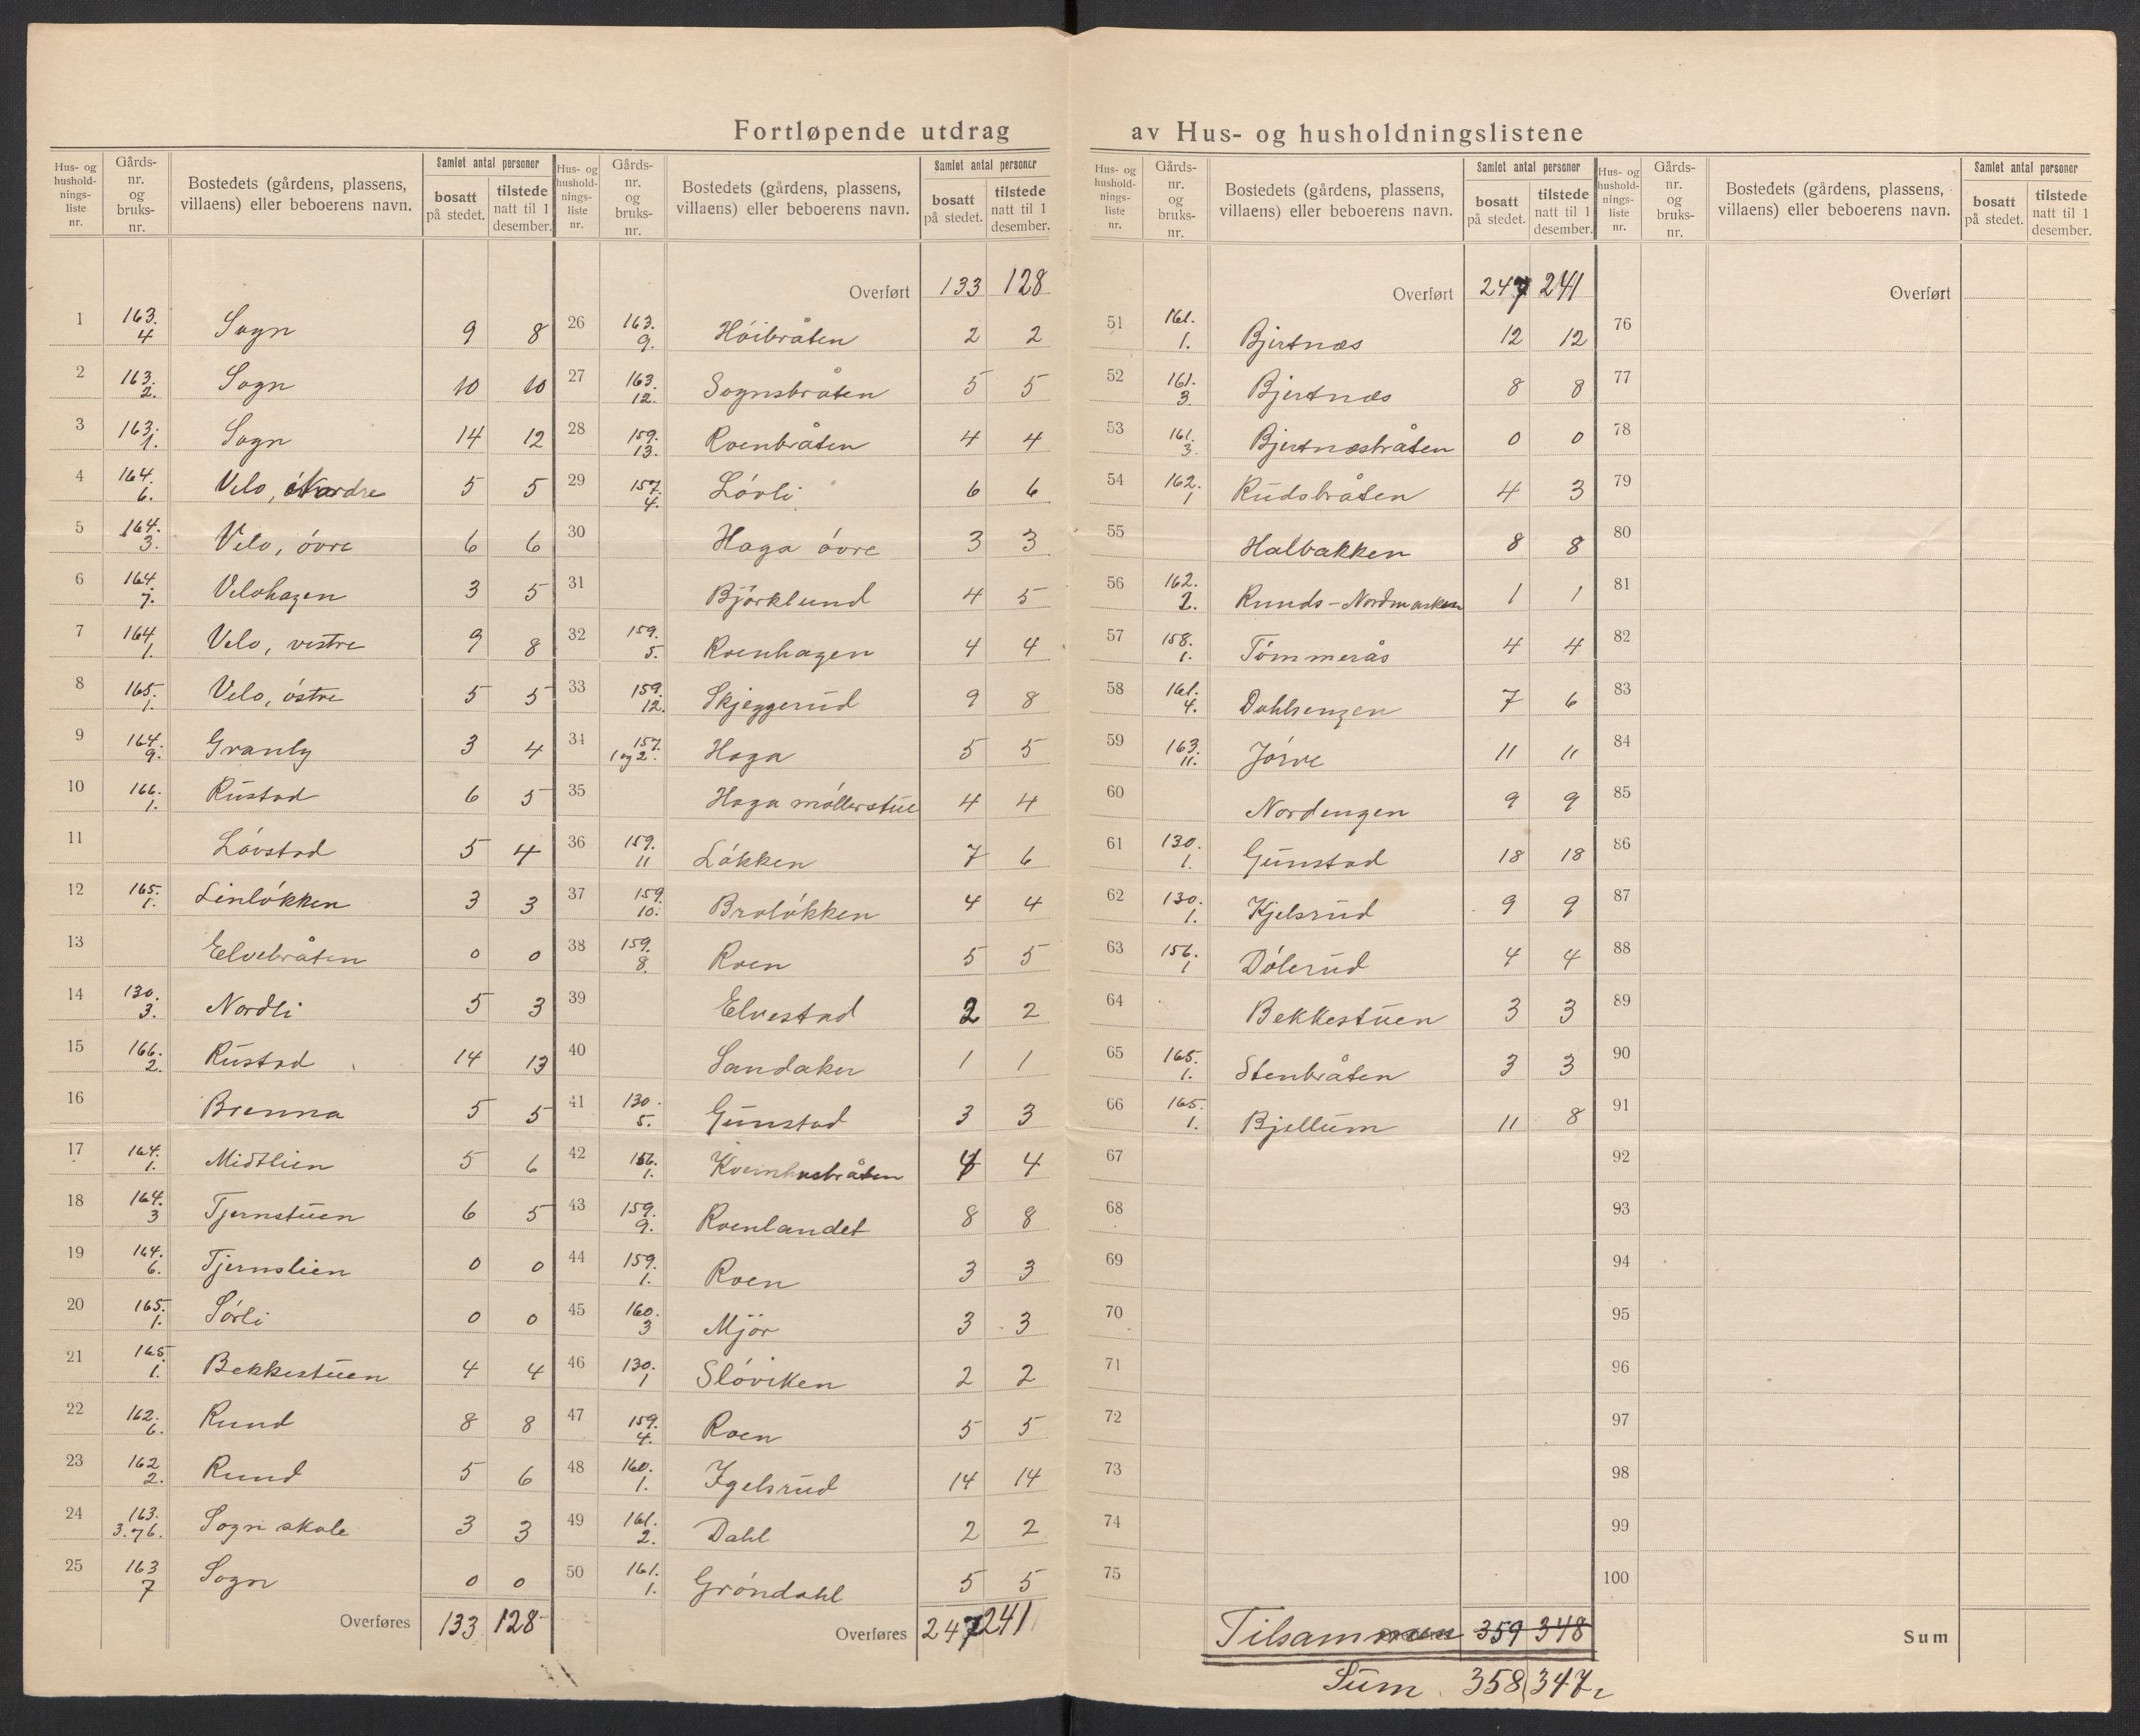 Fortløpende utdrag av Hus- og husholdningslistene
Hus- og husholdnings-liste nr. | Gårds-nr. og bruks-nr. | Bostedets (gårdens, plassens, villaens) eller beboerens navn. | Samlet antal personer bosatt på stedet. | tilstede natt til 1 desember.
1 163. 4 Sogn 9 8
2 163. 2. Sogn 10 10
3 163. 1. Sogn 14 12
4 164. 6. Velo, Nordre 5 5
5 164. 3. Velo, óvre 6 6
6 164. 7. Velohagen 3 5
7 164. 1. Velo, vestre 9 8
8 165. 1. Velo, óstre 5 5
9 164. 9. Granly 3 4
10 166. 1. Rustad 6 5
11 Lóvstad 5 4
12 165. 1. Linlókken 3 3
13 Elvebråten 0 0
14 130. 3. Nordli 5 3
15 166. 2. Rustad 14 13
16 Brenna 5 5
17 164. 1. Midtlien 5 6
18 164. 3 Tjernstuen 6 5
19 164. 6. Tjernslien 0 0
20 165. 1. Sórli 0 0
21 165 1. Bekkestuen 4 4
22 162. 6. Rund 8 8
23 162 2. Rund 5 6
24 163. 3.76. Sogn skole 3 3
25 163 7 Sogn 0 0
Overføres 133 128
Hus- og husholdnings-liste nr. | Gårds-nr. og bruks-nr. | Bostedets (gårdens, plassens, villaens) eller beboerens navn. | Samlet antal personer bosatt på stedet. | tilstede natt til 1 desember.
Overført 133 128
26 163. 9. Hóibråten 2 2
27 163. 12. Sognsbråten 5 5
28 159. 13. Roenbråten 4 4
29 157. 4. Lóvli 6 6
30 Haga óvre 3 3
31 Bjórklund 4 5
32 159. 5. Roenhagen 4 4
33 159. 12. Skjeggerud 9 8
34 157. 1 og 2. Haga 5 5
35 Haga móllerstue 4 4
36 159. 11 Lókken 7 6
37 159. 10. Brolókken 4 4
38 159. 8. Roen 5 5
39 Elvestad 2 2
40 Sandaker 1 1
41 130. 5. Gunstad 3 3
42 156. 1. Kveinhusbråten 4 4
43 159. 9. Roenlandet 8 8
44 159. 1. Roen 3 3
45 160. 3 Mjór 3 3
46 130. 1 Slóviken 2 2
47 159. 4. Roen 5 5
48 160. 1. Igelsrud 14 14
49 161. 2. Dahl 2 2
50 161. 1. Gróndahl 5 5
Overføres 247 241
Hus- og husholdnings-liste nr. | Gårds-nr. og bruks-nr. | Bostedets (gårdens, plassens, villaens) eller beboerens navn. | Samlet antal personer bosatt på stedet. | tilstede natt til 1 desember.
Overført 247 241
51 161. 1. Bjertnæs 12 12
52 161. 3. Bjertnæs 8 8
53 161. 3. Bjertnæsbråten 0 0
54 162. 1 Rudsbråten 4 3
55 Halbakken 8 8
56 162. 2. Runds-Nordmarken 1 1
57 158. 1. Tómmerås 4 4
58 161. 4. Dahlsengen 7 6
59 163. 11. Jórve 11 11
60 Nordengen 9 9
61 130. 1. Gunstad 18 18
62 130. 1. Kjelsrud 9 9
63 156. 1 Dólerud 4 4
64 Bekkestuen 3 3
65 165. 1. Stenbråten 3 3
66 165. 1. Bjellum 11 8
67
68
69
70
71
72
73
74
75
Tilsammen 359 348
Sum 358 347
Hus- og husholdnings-liste nr. | Gårds-nr. og bruks-nr. | Bostedets (gårdens, plassens, villaens) eller beboerens navn. | Samlet antal personer bosatt på stedet. | tilstede natt til 1 desember.
Overført
76
77
78
79
80
81
82
83
84
85
86
87
88
89
90
91
92
93
94
95
96
97
98
99
100
Sum